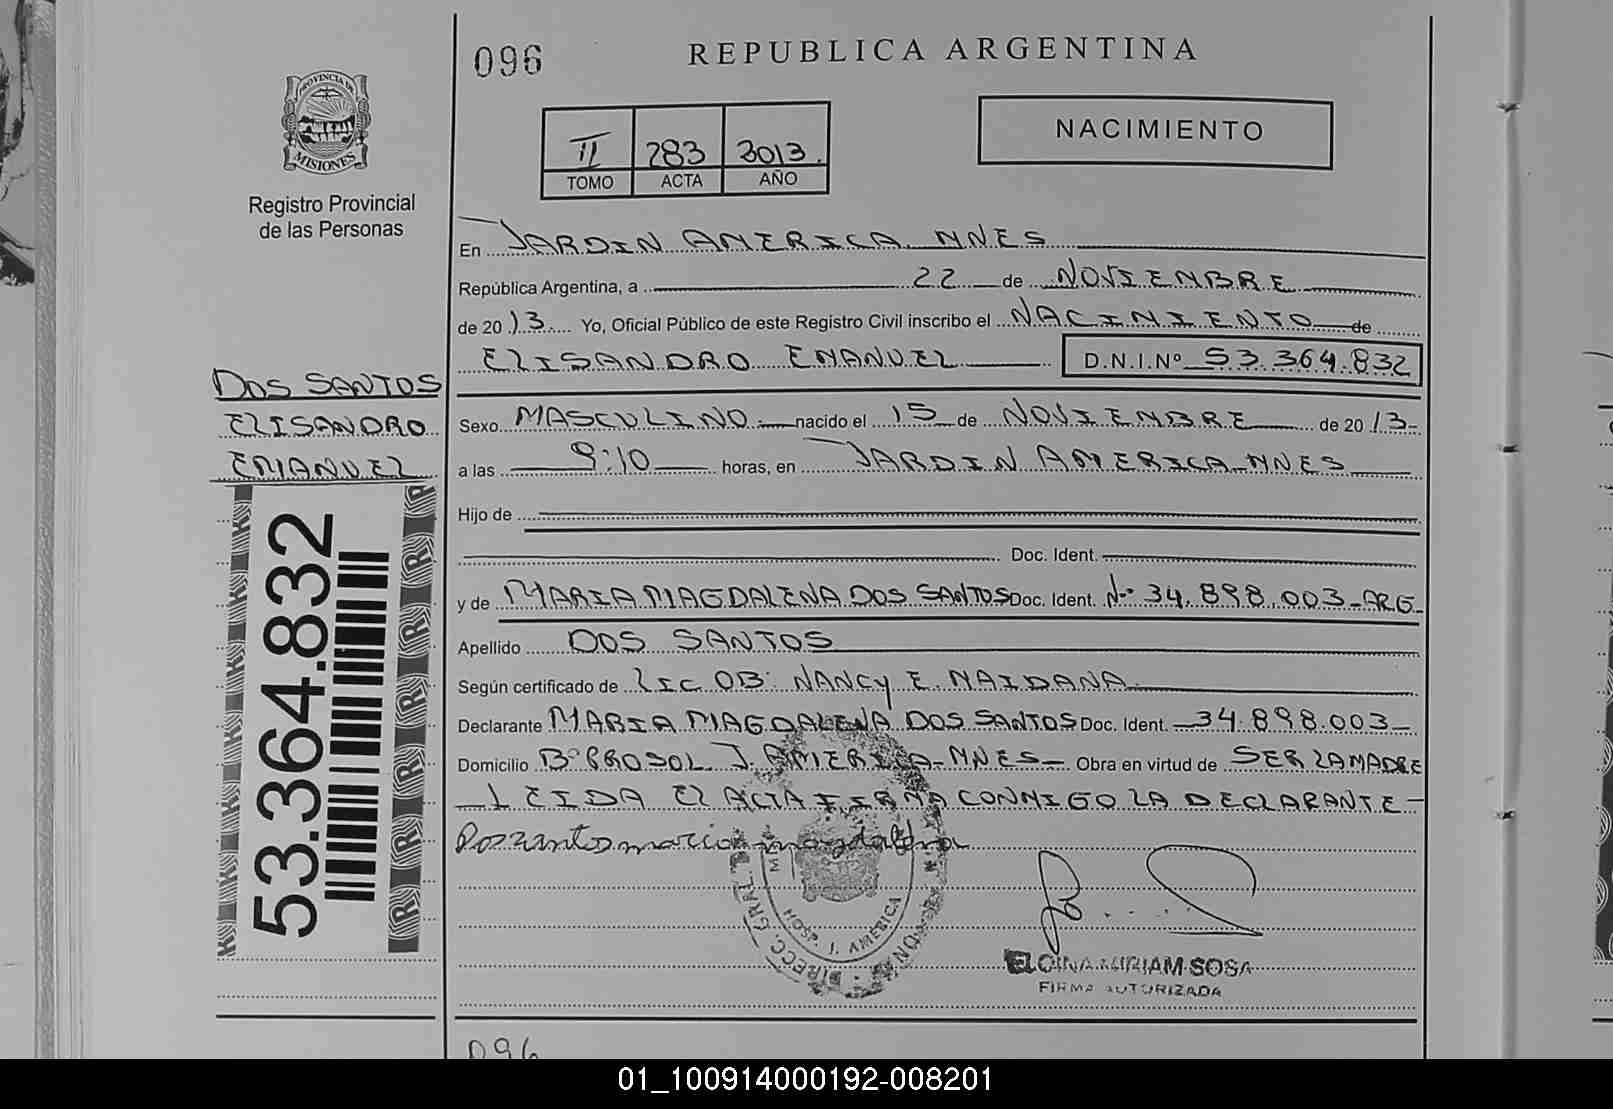 096
REPUBLICA ARGENTINA
PROVINCIA DE
MISIONES
Registro Provincial
de las Personas
II 283 2013.
TOMO ACTA AÑO
NACIMIENTO
En JARDIN AMERICA MNES
República Argentina, a 22 de NOVIEMBRE
de 2013. Yo, Oficial Público de este Registro Civil inscribo el NACIMIENTO de
ELISANDRO EMANUEL D.N.I.Nº 53.364.832
DOS SANTOS
ELISANDRO
EMANUEL
53.364.832
Sexo MASCULINO nacido el 15 de NOVIEMBRE de 2013
a las 9:10 horas, en JARDIN AMERICA MNES
Hijo de
Doc. Ident.
y de MARIA MAGDALENA DOS SANTOS Doc. Ident. Nº 34.898.003-ARG
Apellido DOS SANTOS
Según certificado de LIC OB. NANCY E. MAIDANA
Declarante MARIA MAGDALENA DOS SANTOS Doc. Ident. 34.898.003
Domicilio Bº PROSOL J. AMERICA-MNES Obra en virtud de SER LA MADRE
LEIDA EL ACTA FIRMA CONMIGO LA DECLARANTE
Dos santos maria magdalena
DIRECC. GRAL.
HOSP. J. AMERICA
ELOINA MIRIAM SOSA
FIRMA AUTORIZADA
096
01_100914000192-008201